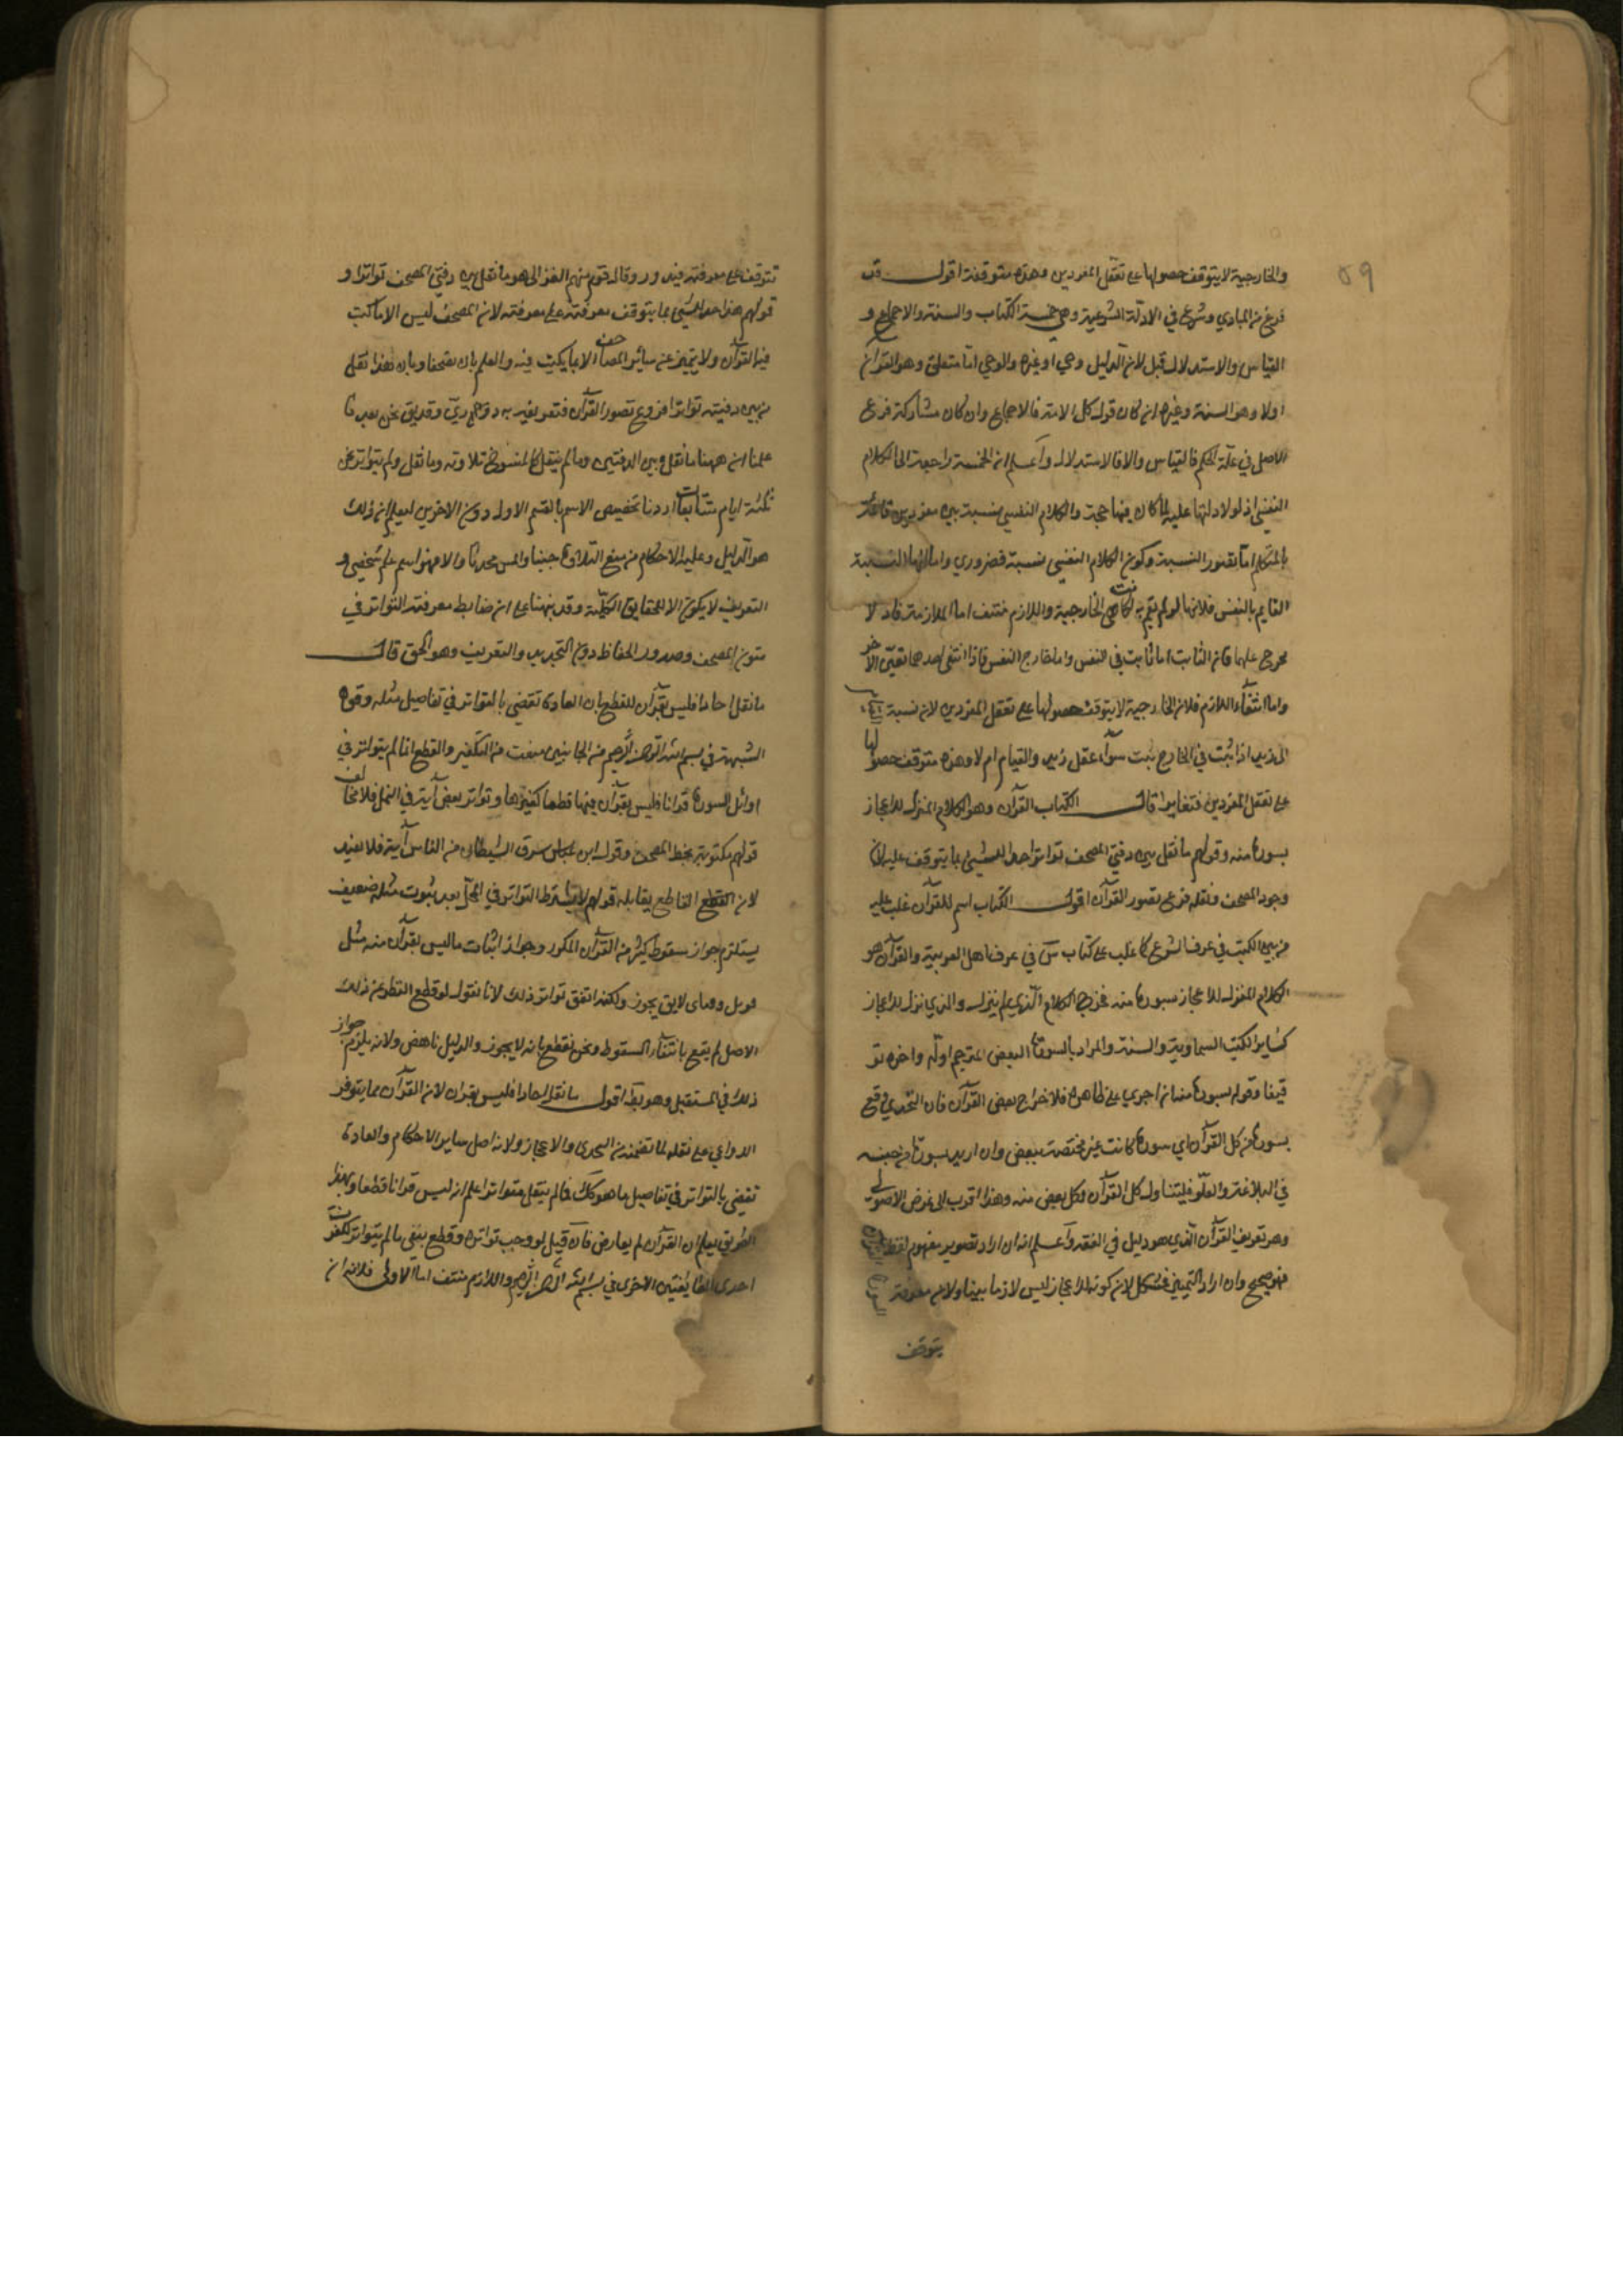 ٥٩
والخارجية لا يتوقف حصولها على تعقل المفردين وهذه متوقفة اقول قد
فرغ من المبادي وشرع في الادلة الشرعية وهي خمسة الكتاب والسنة والاجماع و
القياس والاستدلال قيل لان الدليل وحي او غيره والوحي اما متلو وهو القرآن
اولا وهو السنة وغيره ان كان قول كل الامة فالاجماع وان كان مشاركة فرع
الاصل في علة الحكم فالقياس والا فالاستدلال واعلم ان الخمسة راجعة الى الكلام
النفسي اذ لولا دلالتها عليه لما كان فيها حجة والكلام النفسي نسبة بين مفردين قائمة
بالمتكلم اما تصور النسبة وكون الكلام النفسي نسبة فضروري واما انها النسبة
القايم بالنفس فلانها لو لم تقم به لكانت هي الخارجية واللازم منتف اما الملازمة فاذ لا
مخرج عليهما فان الثابت اما ثابت في النفس واما خارج النفس فاذا انتفى احدهما تعين الآخر
واما انتفاء اللازم فلان الخارجية لا يتوقف حصولها على تعقل المفردين لان نسبة
لزيد اذا ثبت في الخارج ثبت سواء عقل زيد والقيام ام لا وهذه متوقف حصولها
على تعقل المفردين فتغايرا قال الكتاب القرآن وهو الكلام المنزل للاعجاز
بسورة منه وقولهم ما نقل بين دفتي المصحف تواترا حد للشيء بما يتوقف عليه لان
وجود المصحف ونقله فرع تصور القرآن اقول الكتاب اسم للقرآن غلب عليه
من بين الكتب في عرف الشرع كما غلب على كتاب س في عرف اهل العربية والقرآن هو
الكلام المنزل للاعجاز بسورة منه فخرج الكلام الذي لم ينزل والذي نزل لا للاعجاز
كساير الكتب السماوية والسنة والمراد بالسورة البعض المترجم اوله واخره تو
قيفا وقوله بسورة منه ان اجري على ظاهره فلاخراج بعض القرآن فان التحدي وقع
بسورة من كل القرآن اي سورة كانت غير مختصة ببعض وان اريد بسورة من جنسه
في البلاغة والعلو فليتناول كل القرآن وكل بعض منه وهذا اقرب الى غرض الاصولي
وهو تعريف القرآن الذي هو دليل في الفقه واعلم انه ان اراد تصوير مفهوم لفظ
فهو صحيح وان اراد التمييز فمشكل لان كونه للاعجاز ليس لازما بينا ولان معرفة
يتوقف
تتوقف على معرفته فيدور وقال قوم منهم الغزالي هو ما نقل بين دفتي المصحف تواترا و
قولهم هذا حد للشيء بما يتوقف معرفته على معرفته لان المصحف ليس الا ما كتب
فيه القرآن ولا يتميز عن سائر المصاحف الا بما يكتب فيه والعلم بان مصحفا وبان هذا نقل
من بين دفتيه تواترا فرع تصور القرآن فتعريفه به دور وقد يق نحن بعد ما
علمنا ان ههنا ما نقل بين الدفتين وما لم ينقل كالمنسوخ تلاوته وما نقل ولم يتواتر نحو
ثلثة ايام متتابعات اردنا تخصيص الاسم بالقسم الاول دون الاخرين ليعلم ان ذلك
هو الدليل وعليه الاحكام من منع التلاوة جنبا والمس محدثا والا فهو اسم علم شخصي و
التعريف لا يكون الا للحقايق الكلية وقد نبهنا على ان ضابط معرفته التواتر في
متون المصحف وصدور الحفاظ دون التحديد والتعريف وهو الحق قال
ما نقل احادا فليس بقرآن للقطع بان العادة تقضي بالتواتر في تفاصيل مثله وقوة
الشبهة في بسم الله الرحمن الرحيم من الجانبين منعت من التكفير والقطع انها لم تتواتر في
اوائل السور قرانا فليس بقرآن فيها قطعا كغيرها وتواتر بعض آية في النمل فلا مخالف
قولهم مكتوبة بخط المصحف وقول ابن عباس سرق الشيطان من الناس آية فلا يفيد
لان القطع القاطع يقابله قولهم لا يشترط التواتر في المحل بعد ثبوت مثله ضعيف
يستلزم جواز سقوط كثير من القرآن المكرر وجواز اثبات ما ليس بقرآن منه مثل
ويل وفباي لا يق يجوز ولكنه اتفق تواتر ذلك لانا نقول لو قطع النظر عن ذلك
الاصل لم يقع بانتفاء السقوط ونحن نقطع بانه لا يجوز والدليل ناهض ولانه يلزم جواز
ذلك في المستقبل وهو بط اقول ما نقل احادا فليس بقرآن لان القرآن مما يتوفر
الدواعي على نقله لما تضمنه من التحدي والاعجاز ولانه اصل ساير الاحكام والعادة
تقضي بالتواتر في تفاصيل ما هو كك فما لم ينقل متواترا علم انه ليس قرانا قطعا وبهذا
الطريق يعلم ان القرآن لم يعارض فان قيل لو وجب تواتره وقطع بنفي ما لم يتواتر لكفرت
احدى الطايفتين الاخرى في بسم الله الرحمن الرحيم واللازم منتف اما الاولى فلانه ان